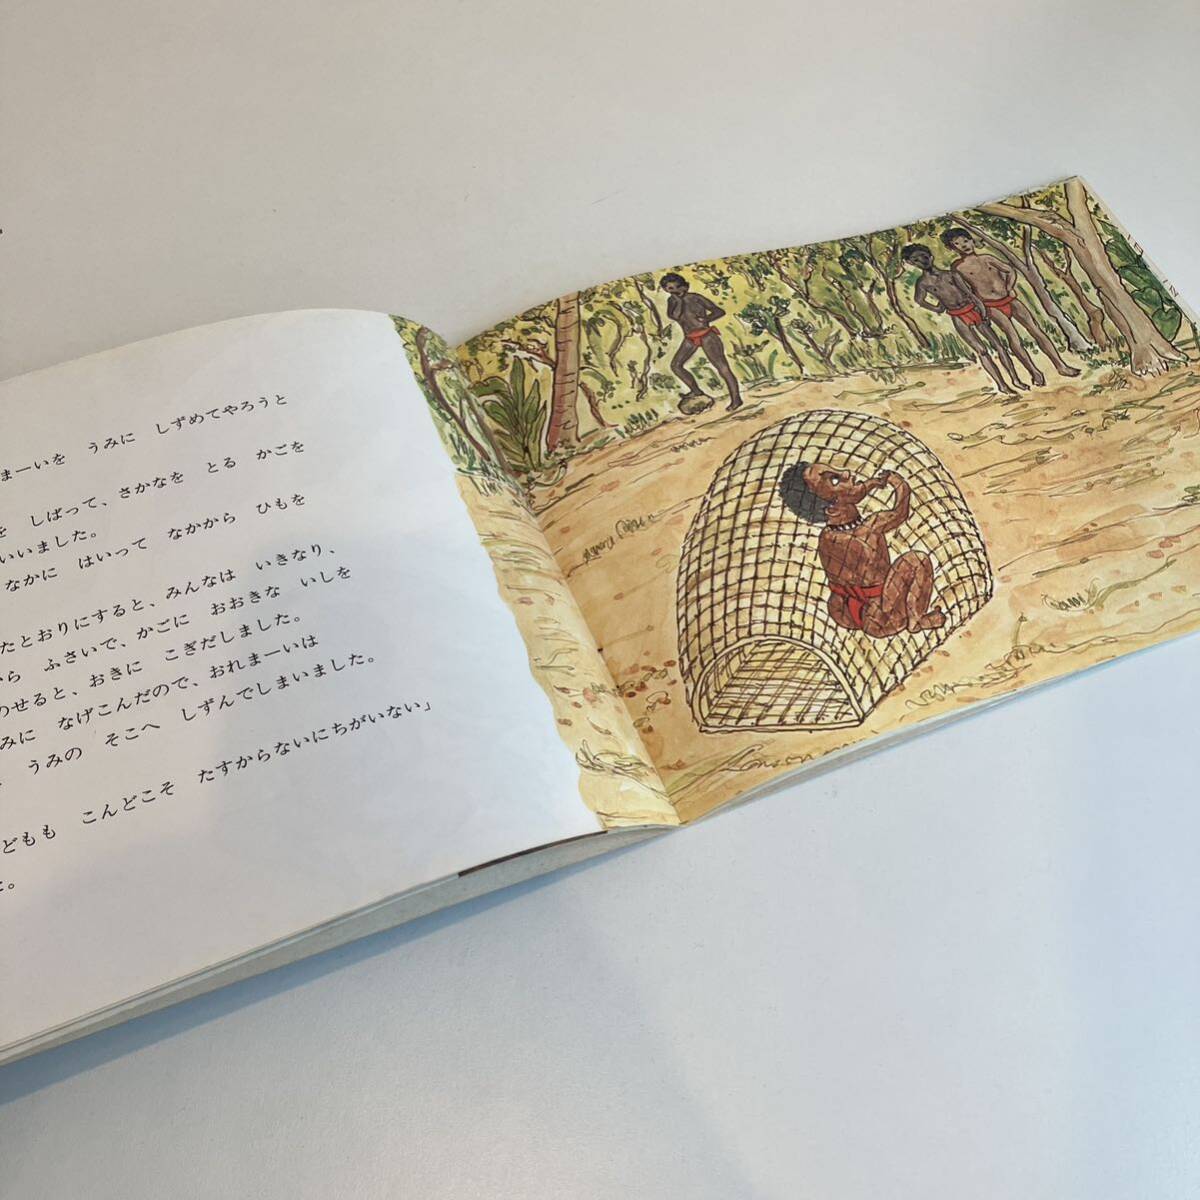 まーいを　うみに　しずめてやろうと
を　しばって、さかなを　とる　かごを
いいました。
なかに　はいって　なかから　ひもを
たとおりにすると、みんなは　いきなり、
から　ふさいで、かごに　おおきな　いしを
のせると、おきに　こぎだしました。
みに　なげこんだので、おれまーいは
うみの　そこへ　しずんでしまいました。
どもも　こんどこそ　たすからないにちがいない」
た。